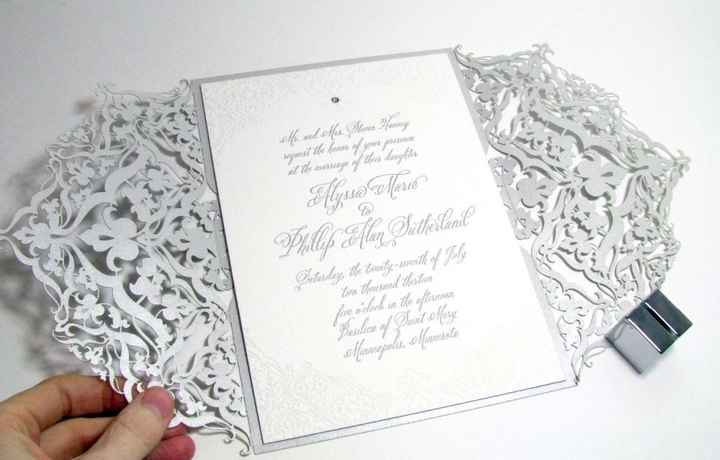 Mr. and Mrs. Steven Hennig
request the honor of your presence
at the marriage of their daughter
Alyssa Marie
to
Phillip Alan Sutherland
Saturday, the twenty-seventh of July
two thousand thirteen
five o'clock in the afternoon
Basilica of Saint Mary
Minneapolis, Minnesota